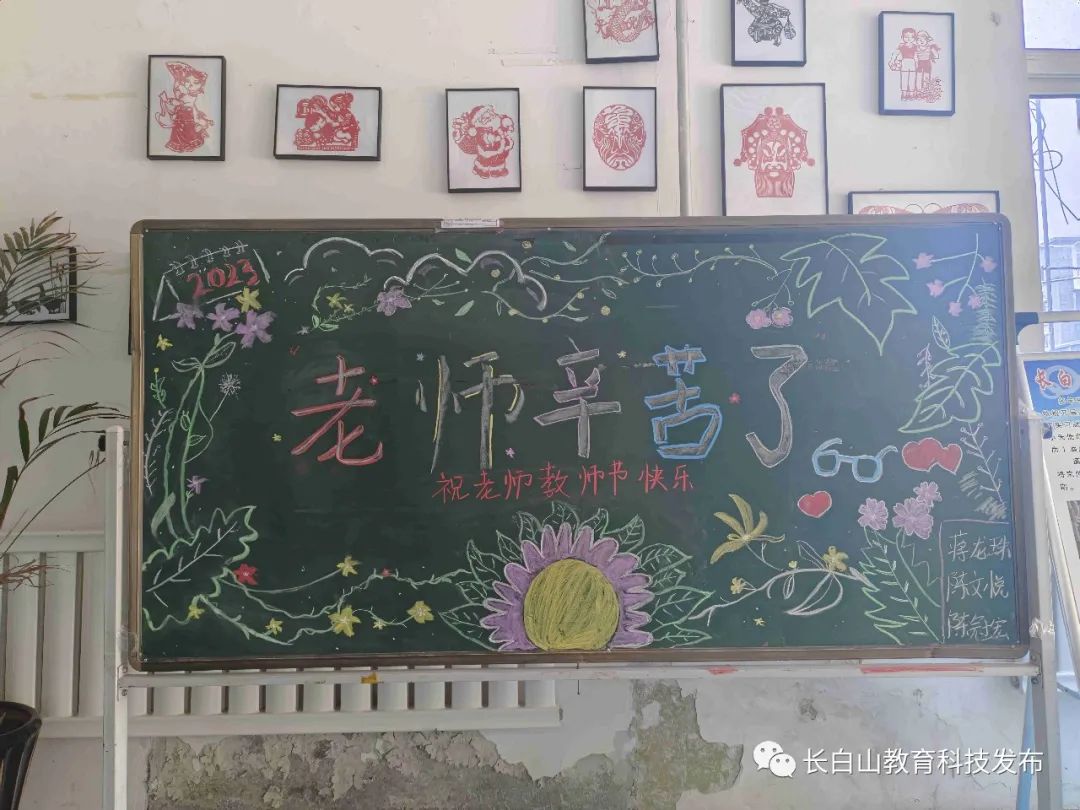 2023
老师辛苦了
祝老师教师节快乐
蒋龙珠
陈文悦
陈冠宏
长白
长白山教育科技发布